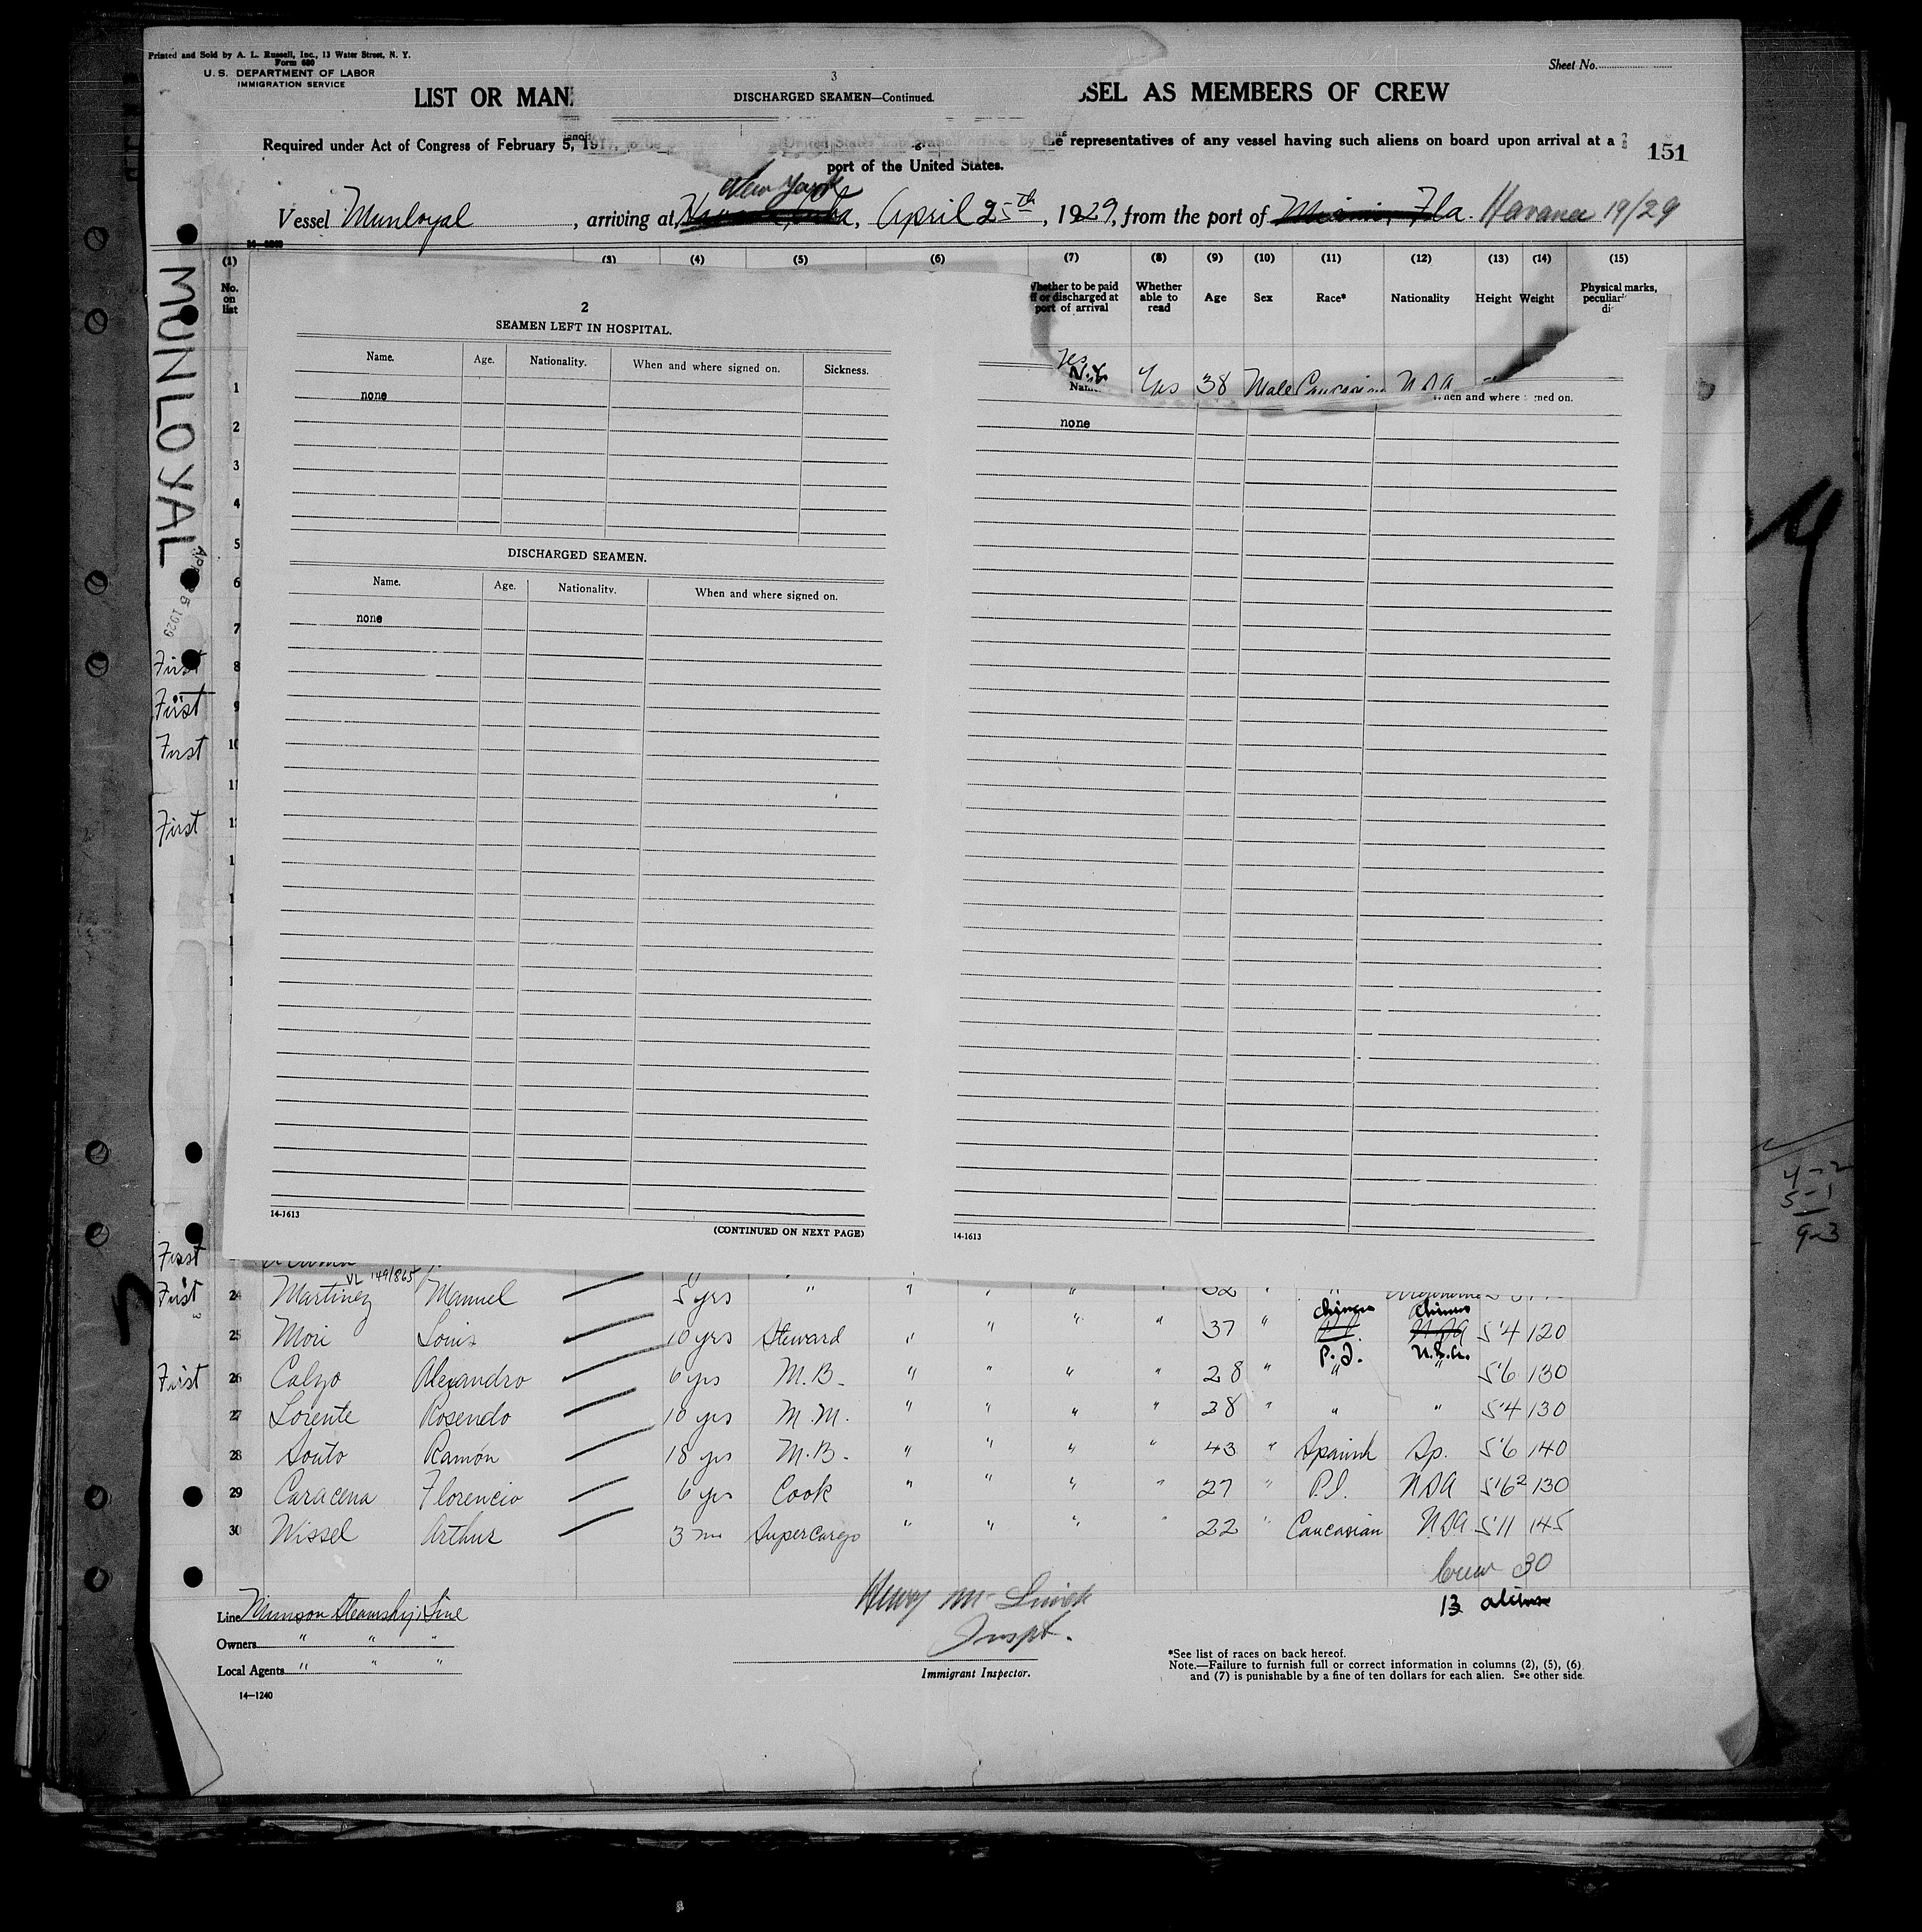 Printed and Sold by A. L. Russell, Inc., 13 Water Street, N. Y.
Form 680
U. S. DEPARTMENT OF LABOR
IMMIGRATION SERVICE
Sheet No.
3
DISCHARGED SEAMEN—Continued.
LIST OR MAN
SSEL AS MEMBERS OF CREW
Required under Act of Congress of February 5, 1917, to be
by the representatives of any vessel having such aliens on board upon arrival at a
port of the United States.
151
New York
Vessel Munloyal, arriving at Havana, Cuba, April 25th, 1929, from the port of Miami, Fla. Havana 19/29
MUNLOYAL
5 1929
(1) (3) (4) (5) (6) (7) (8) (9) (10) (11) (12) (13) (14) (15)
No. on list
Whether to be paid off or discharged at port of arrival
Whether able to read
Age
Sex
Race*
Nationality
Height
Weight
Physical marks,
Yes
N.Y. Yes 38 Male Caucasian
2
SEAMEN LEFT IN HOSPITAL.
Name. Age. Nationality. When and where signed on. Sickness.
none
DISCHARGED SEAMEN.
Name. Age. Nationality. When and where signed on.
none
14-1613
(CONTINUED ON NEXT PAGE)
When and where signed on.
none
14-1613
1
2
3
4
5
6
7
First 8
First 9
First 10
11
First
First
First 24 Martinez Manuel 5 yrs " " " " " 32 "
VL 149/865
Chinese Chinese
25 Mori Louis 10 yrs Steward " " " " 37 " 5'4 120
P.I. U.S.A.
First 26 Calzo Alexandro 6 yrs M.B. " " " " 28 " " " 5'6 130
27 Lorente Rosendo 10 yrs M.M. " " " " 28 " " " 5'4 130
28 Souto Ramón 18 yrs M.B. " " " " 43 " Spanish Sp. 5'6 140
29 Caracena Florencio 6 yrs Cook " " " " 27 " P.I. USA 5'6 2 130
30 Wissel Arthur 3 ms Supercargo " " " " 22 " Caucasian USA 5'11 145
Crew 30
13 aliens
Line Munson Steamship Line
Owners " " "
Local Agents " " "
14—1240
Henry
Inspt.
Immigrant Inspector.
*See list of races on back hereof.
Note.—Failure to furnish full or correct information in columns (2), (5), (6)
and (7) is punishable by a fine of ten dollars for each alien. See other side.
4-2
5-1
9-3